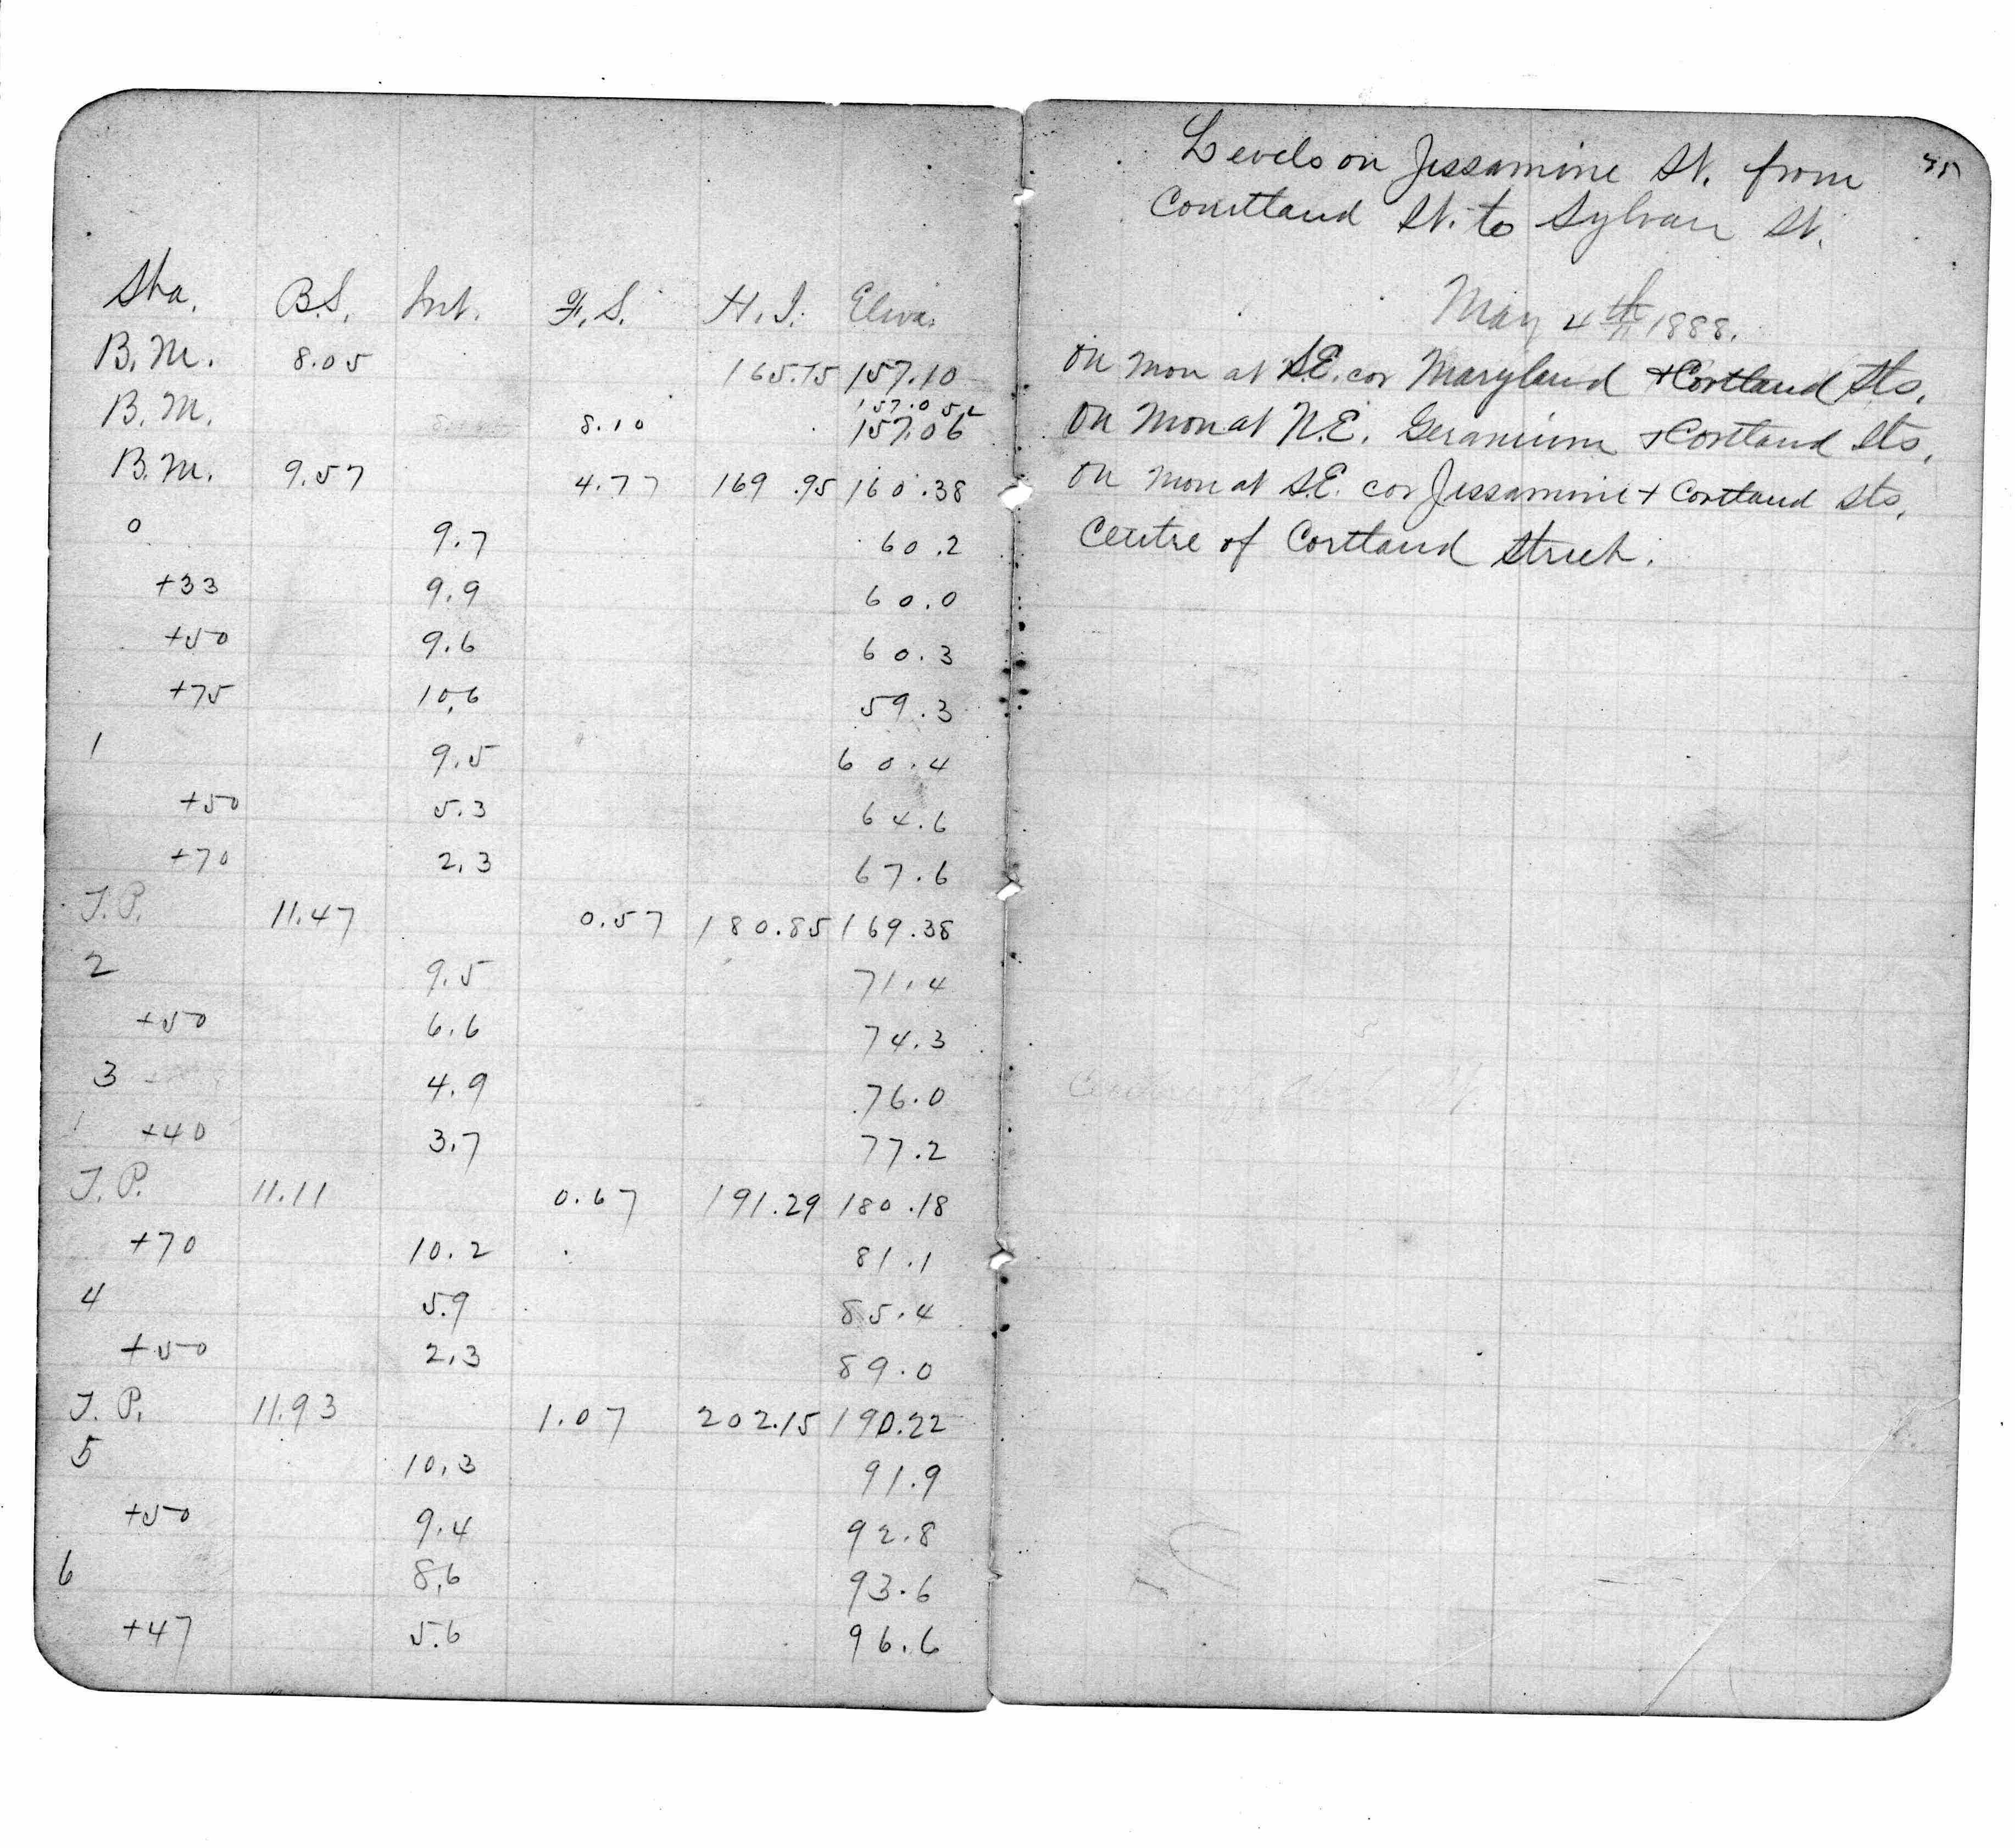 Sta. B.S. Int. F.S. H.I. Eleva.
B.M. 8.05 165.15 157.10
157.052
B.M. 8.10 157.06
B.M. 9.57 4.77 169.95 160.38
0 9.7 60.2
+33 9.9 60.0
+50 9.6 60.3
+75 10.6 59.3
1 9.5 60.4
+50 5.3 64.6
+70 2.3 67.6
T.P. 11.47 0.57 180.85 169.38
2 9.5 71.4
+50 6.6 74.3
3 4.9 76.0
+40 3.7 77.2
T.P. 11.11 0.67 191.29 180.18
+70 10.2 81.1
4 5.9 85.4
+50 2.3 89.0
T.P. 11.93 1.07 202.15 190.22
5 10.3 91.9
+50 9.4 92.8
6 8.6 93.6
+47 5.6 96.6
Levels on Jessamine St. from
Courtland St. to Sylvan St.
May 4th 1888.
On mon at S.E. cor Maryland + Cortland Sts.
On mon at N.E. Geranium + Cortland Sts.
On mon at S.E. cor Jessamine + Cortland Sts.
Centre of Cortland Street.